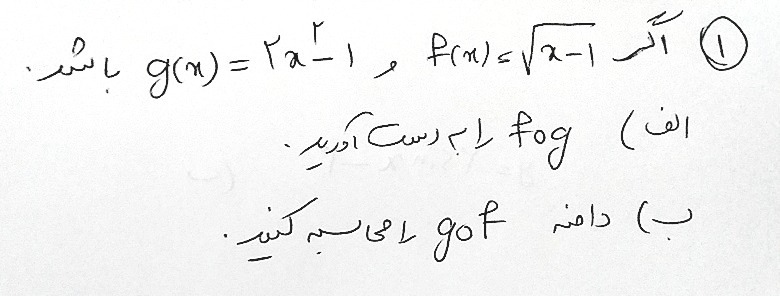 ① اگر f(x)=√(x-1) و g(x)=۲x^۲-۱ باشد.
الف) fog را به دست آورید.
ب) دامنه gof را محاسبه کنید.